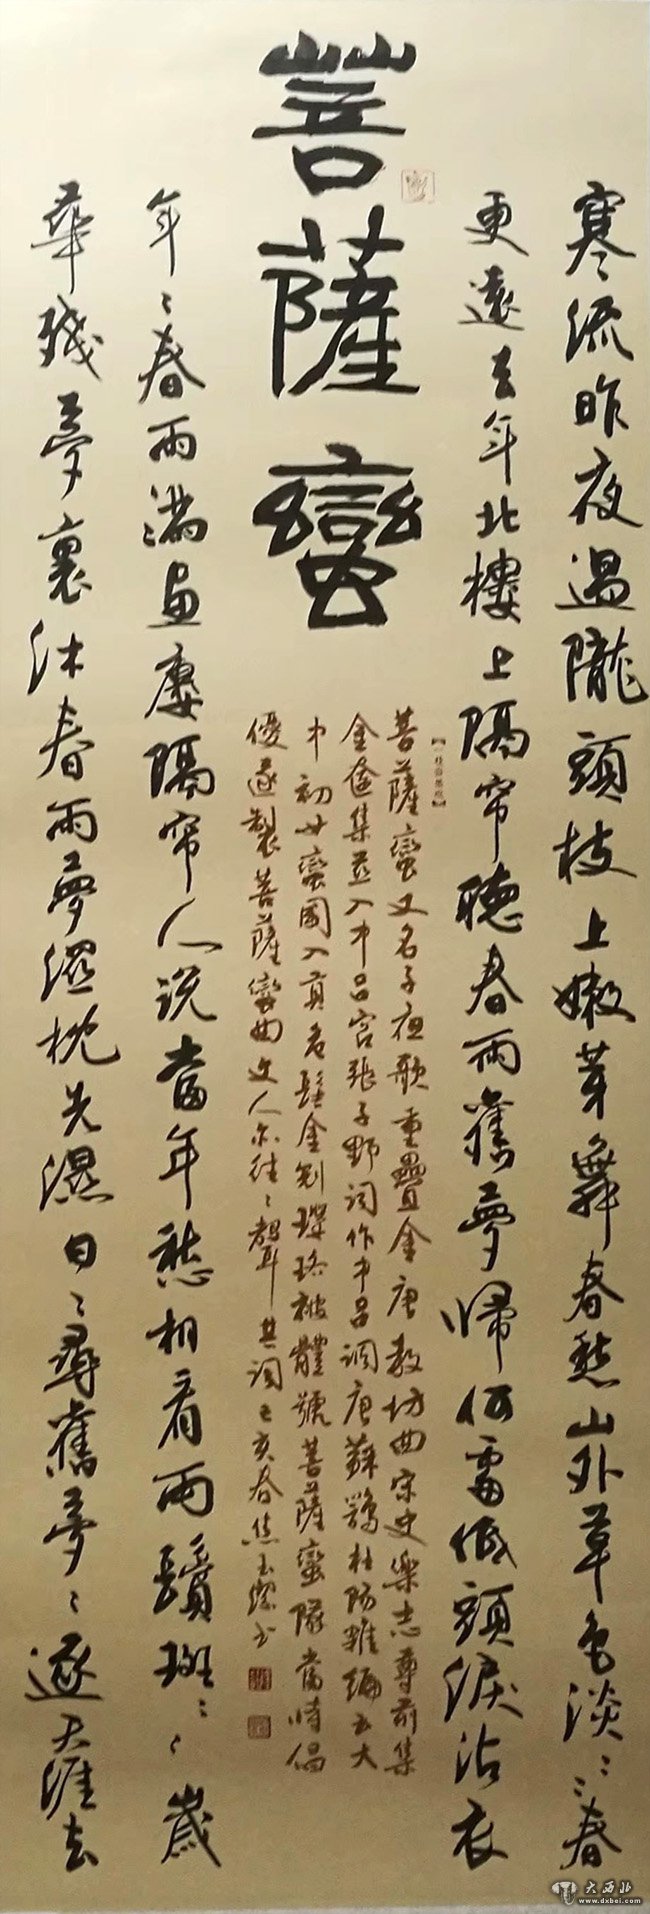 寒流昨夜過隴頭枝上嫩芽舞春愁山外草色淡〻〻春
更遠去年北樓上隔帘聽春雨舊夢歸何處低頭淚沾衣
菩薩蠻
菩薩蠻又名子夜歌重疊金唐教坊曲宋史樂志尊前集
金奩集並入中呂宮張子野詞作中呂調唐蘇鶚杜陽雜編云大
中初女蠻國入貢危髻金冠瓔珞被體號菩薩蠻隊當時倡
優遂製菩薩蠻曲文人亦往〻聲其詞己亥春焦玉書
年〻春雨滿畫廔隔帘人說當年愁相看兩鬢斑〻〻歲
華殘夢裏沐春雨夢枕先濕日〻尋舊夢〻逐天涯去
大西北
www.dxbei.com